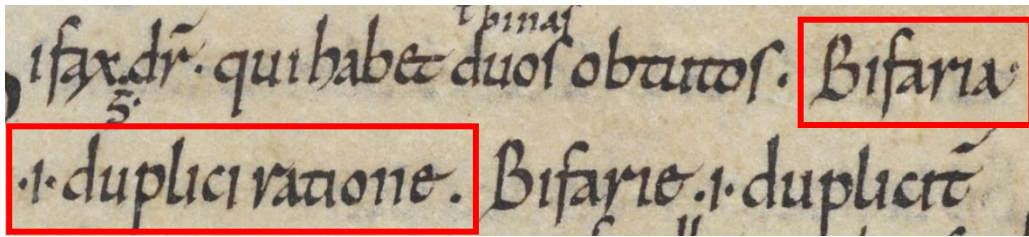 ł binas
ifax. dr̄. qui habet duos obtutos. Bifaria
g̅.
.i. duplici ratione. Bifarie .i. duplicit̄